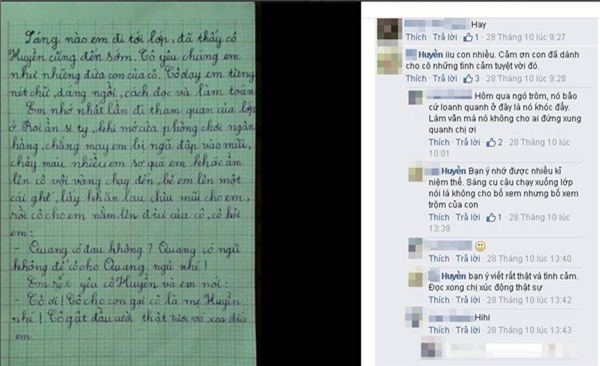 Sáng nào em đi tới lớp, đã thấy cô
Huyền cũng đến sớm. Cô yêu chúng em
như những đứa con của cô. Cô dạy em từng
nét chữ, dáng ngồi, cách đọc và làm toán.
Em nhớ nhất lần đi tham quan của lớp
ở Roi ân si ty, khi mở cửa phòng chơi ngân
hàng, chẳng may em bị ngã đập vào mũi,
chảy máu nhiều em sợ quá em khóc ầm
lên cô vội vàng chạy đến, bế em lên một
cái ghế, lấy khăn lau chùi mũi cho em,
rồi cô cho em nằm lên đùi của cô, cô hỏi
em:
- Quang có đau không? Quang có ngủ
không để cô cho Quang ngủ nhé!
Em rất yêu cô Huyền và em nói:
- Cô ơi! Cô cho con gọi cô là mẹ Huyền
nhé! Cô gật đầu cười thật tươi và xoa đầu
em.
Hay
Thích · Trả lời · 1 · 28 Tháng 10 lúc 9:27
Huyền iiu con nhiều. Cảm ơn con đã dành
cho cô những tình cảm tuyệt vời đó.
Thích · Trả lời · 3 · 28 Tháng 10 lúc 9:28
Hôm qua ngó trộm, nó bảo
cứ loanh quanh ở đây là nó khóc đấy.
Làm văn mà nó không cho ai đứng xung
quanh chị ơi
Thích · Trả lời · 2 · 28 Tháng 10 lúc
10:01
Huyền Bạn ý nhớ được nhiều kỉ
niệm thế. Sáng cu cậu chạy xuống lớp
nói là không cho bố xem nhưng bố xem
trộm của con
Thích · Trả lời · 1 · 28 Tháng 10 lúc
13:39
Thích · Trả lời · 28 Tháng 10 lúc 13:40
Huyền bạn ý viết rất thật và tình cảm.
Đọc xong chị xúc động thật sự
Thích · Trả lời · 28 Tháng 10 lúc 13:42
Hihi
Thích · Trả lời · 28 Tháng 10 lúc 13:43